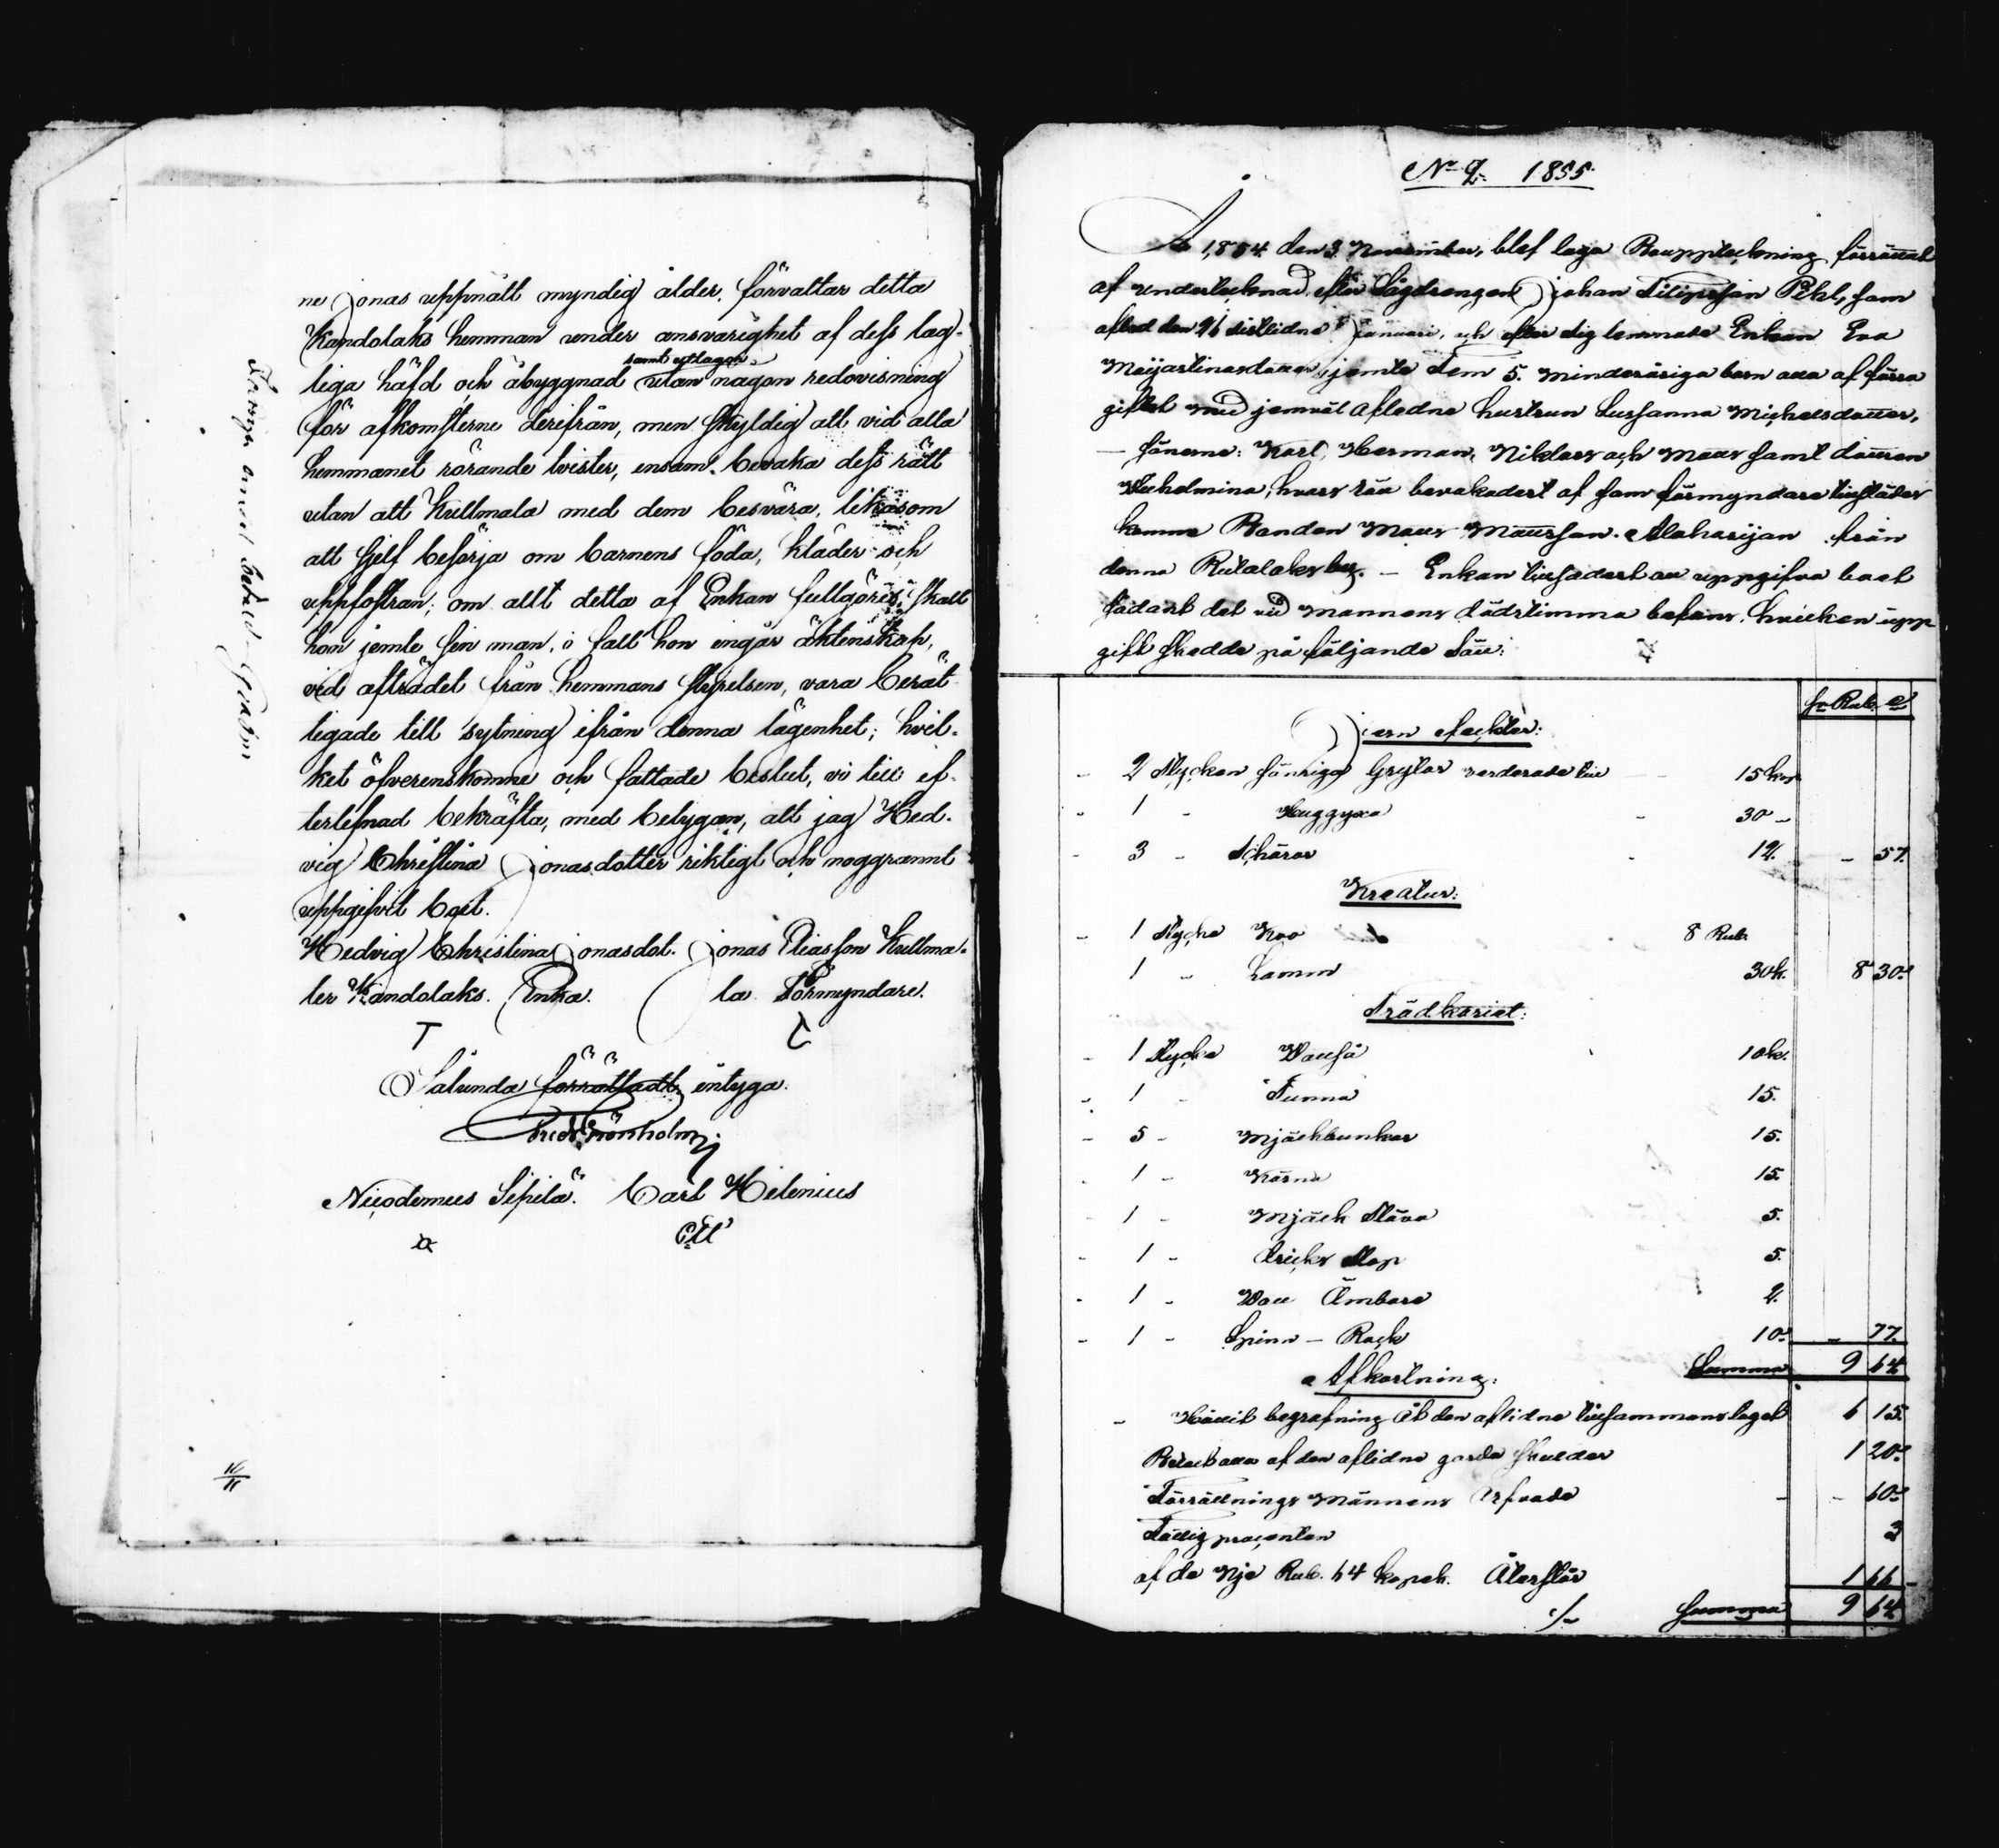 ne Jonas uppnått myndig ålder, förvaltar detta
Kandolaks hemman under ansvarighet af dess lag-
samt utlagor
liga häfd och åbyggnad utan någon redovisning
för afkomsterne derifrån, men skyldig att vid alla
hemmanet rörande tvister, ensam bevaka dess rätt
utan att Kullmala med dem besvära, likasom
att sjelf besörja om barnens föda, kläder och
uppfostran; om allt detta af Enkan fullgöres, skall
hon jemte sin man, i fall hon ingår äktenskap,
vid afträdet från hemmans styrelsen, vara berät-
tigade till sytning ifrån denna lägenhet; hvil-
ket öfverenskomne och fattade beslut, vi till ef-
terlefnad bekräfta, med betygan, att jag Hed-
vig Christina Jonasdotter riktigt och noggrannt
uppgifvit boet.
Hedvig Christina Jonasdot- Jonas Eliasson Kullma-
ter Kandolaks. Enka. la Förmyndare.
Sålunda förrättadt, intyga.
Nicodemus Sipilä. Carl Helenius
N 2. 1855.
År 1,854 den 3 November, blef laga Bouppteckning förrättad
af undertecknad, efter Johan Filipsson Pihl, som
afled den 26 sistlidne Januari, och efter sig lemnade Enkan Eva
jemte dem 5. minderåriga barn alla af förra
giftet med jemväl aflidne hustrun Sussanna Michelsdotter,
– sönerne: Karl, Herman, Niklas och Matts samt dottren
Vilhelmina, hvars rätt bevakades af som förmyndare tillstädes
komne Bonden Matts Mattsson Alaharjan från
denna by. – Enkan tillsades att uppgifva boet
sådant det vid mannens dödstimma befans, hvilken upp-
gift skedde på följande sätt:
Sr Rub. C
Jern effekter:
- 2 Stycken sönriga Grytor värderade till 15 kop
- 1 - Huggyxa - 30 -
- 3 - Skäror - 12. - 57.
Kreatur:
- 1 Stycke Koo 8 Rub.
1 - Lamm 30 k. 8 30
Trädkäriat:
- 1 Stycke Vattuså 10 k.
- 1 - Tunna 15.
- 5 - Mjölkbunkar 15.
- 1 - Kärna 15.
- 1 - Mjölk Stäva 5.
- 1 - Dricks Stop 5.
- 1 - Vatt Ämbare 2.
- 1 - Spinn – Rock 10 - 77.
Summa 9 64
Afkortning:
- Hållit begrafning åt den aflidne tillsammanslaget 6 15.
Betalt alla af den aflidne gorda skulder 1 20
Förrättnings Männens Arfvode - - 60
Fattig procenten 3
af de Nije Rub. 64 kopek. Återstår 1 66 -
./. Summa 9 64